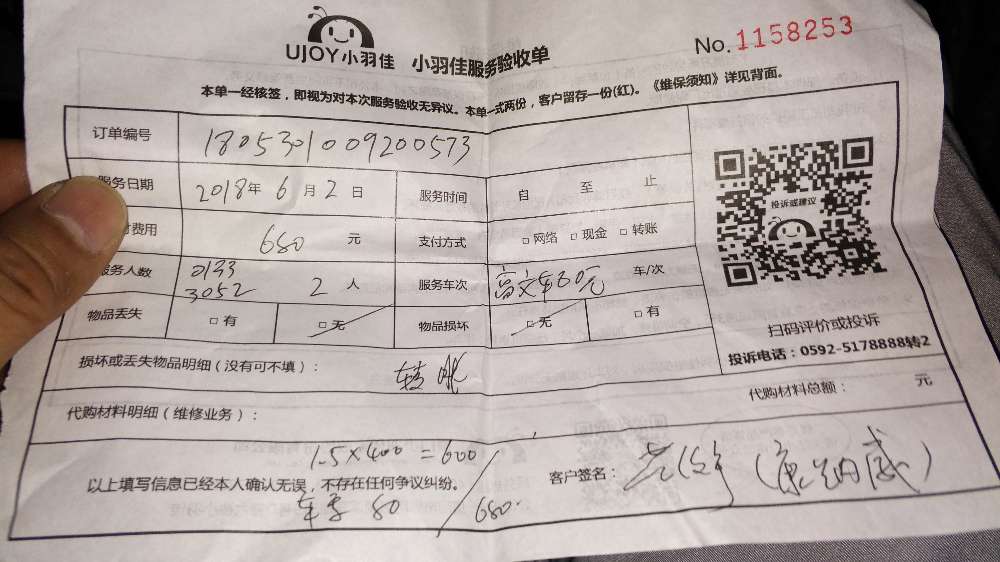 UJOY小羽佳 小羽佳服务验收单 No.1158253
本单一经核签，即视为对本次服务验收无异议。本单一式两份，客户留存一份(红)。《维保须知》详见背面。
订单编号 1805301009200573
服务日期 2018年 6月 2日 服务时间 自 至 止
费用 680 元 支付方式 □网络 □现金 □转账
服务人数 0133 3052 2人 服务车次 车60元 车/次
物品丢失 □有 □无 物品损坏 □无 □有
投诉或建议
扫码评价或投诉
投诉电话：0592-5178888转2
损坏或丢失物品明细(没有可不填)： 转账
代购材料明细(维修业务)： 代购材料总额： 元
1.5×400=600
以上填写信息已经本人确认无误，不存在任何争议纠纷。 客户签名：
80 680.